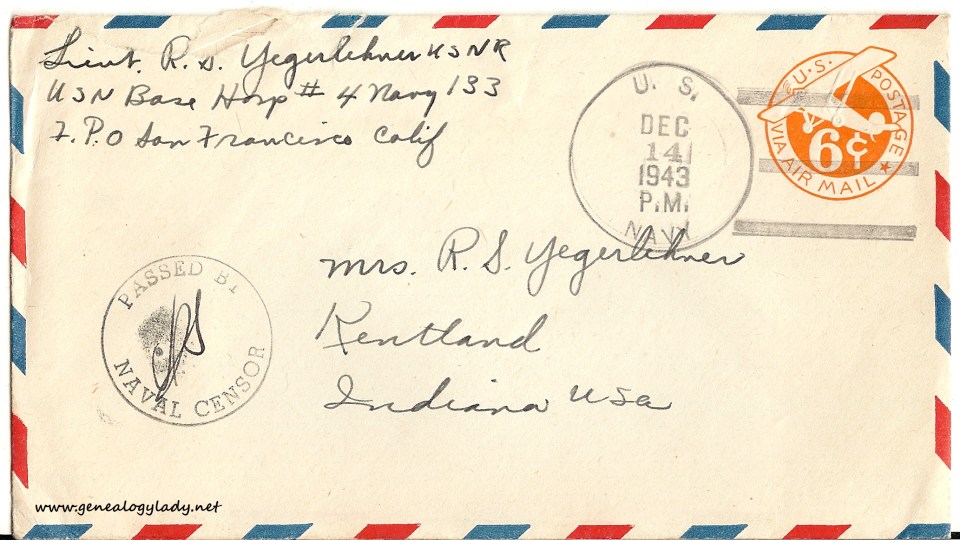 Lieut. R. S. Yegerlehner USNR
USN Base Hosp # 4 Navy 133
F.P.O San Francisco Calif
U. S.
DEC
14
1943
P.M.
NAVY
U.S. POSTAGE
6¢
VIA AIR MAIL
Mrs. R. S. Yegerlehner
Kentland
Indiana USA
PASSED BY
NAVAL CENSOR
www.genealogylady.net